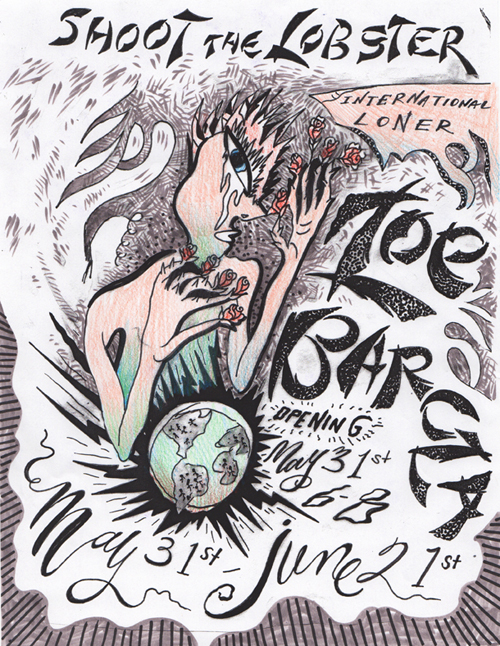 SHOOT THE LOBSTER
INTERNATIONAL
LONER
ZOE
BARCLA
OPENING
May 31st
6-8
May 31st - June 21st